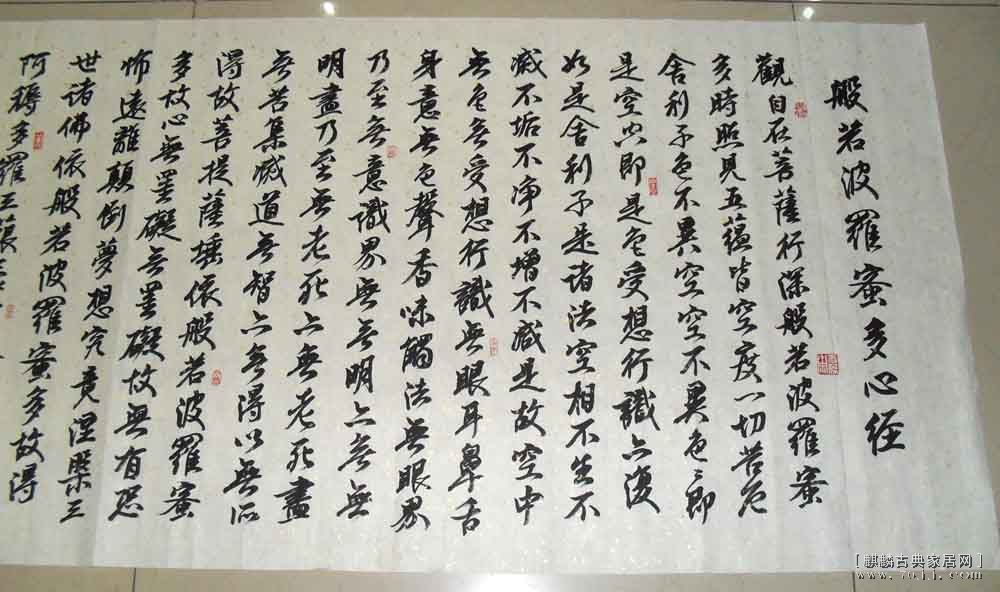 般若波羅蜜多心经
觀自在菩薩行深般若波羅蜜
多時照見五蘊皆空度一切苦厄
舍利子色不異空空不異色色即
是空空即是色受想行識亦復
如是舍利子是诸法空相不生不
滅不垢不净不增不减是故空中
無色無受想行識無眼耳鼻舌
身意無色聲香味觸法無眼界
乃至無意識界無無明亦無無
明盡乃至無老死亦無老死盡
無苦集滅道無智亦無得以無所
得故菩提薩埵依般若波羅蜜
多故心無罣礙無罣礙故無有恐
怖遠離顛倒夢想究竟涅槃三
世诸佛依般若波羅蜜多故得
阿耨多羅三藐三
[麒麟古典家居网]